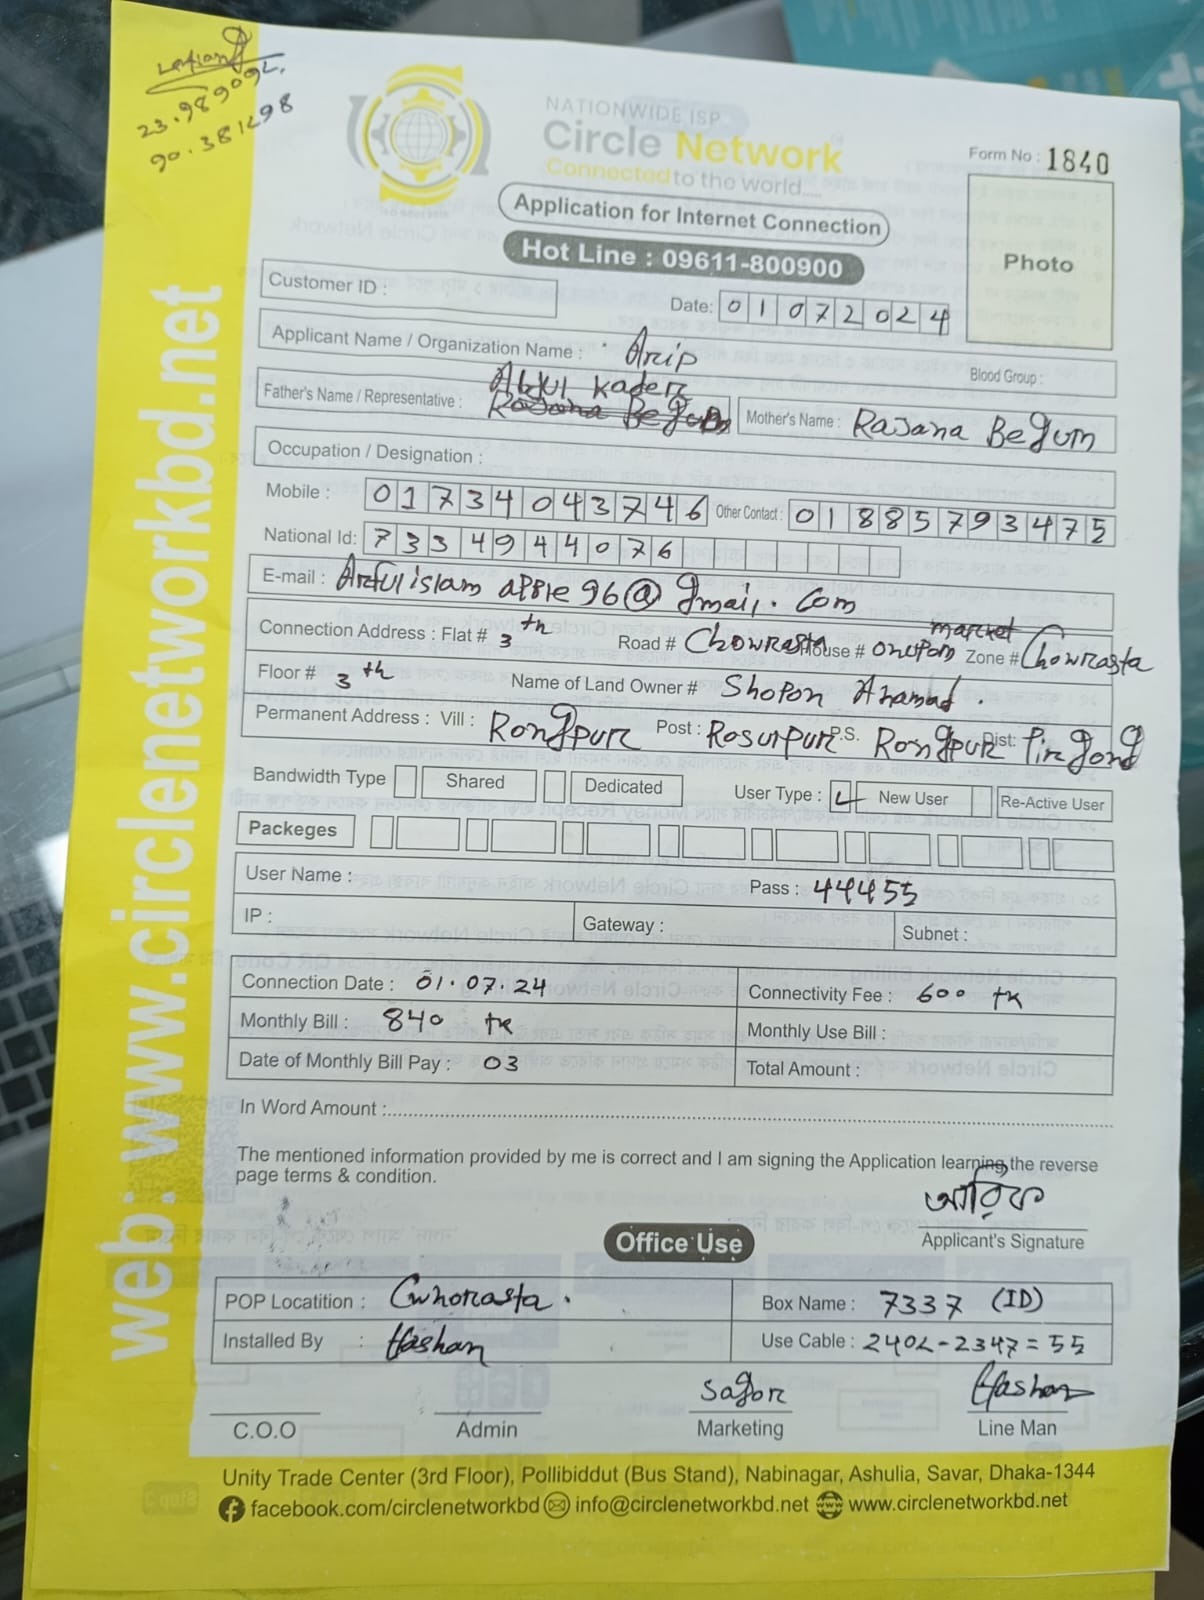 23.989092,
90.381298
NATIONWIDE ISP
Circle Network
Connected to the world.....
Form No : 1840
Application for Internet Connection
Hot Line : 09611-800900
Photo
Customer ID :
Date: 01072024
Applicant Name / Organization Name : Arip
Blood Group :
Abdul Kader
Father's Name / Representative : Rajana Begum
Mother's Name : Rajana Begum
Occupation / Designation :
Mobile : 01734043746 Other Contact : 01885793475
National Id: 7334944076
E-mail : Arifulislam apple 96@gmail.com
Connection Address : Flat # 3th Road # Chowrasta House # onupom market Zone # Chowrasta
Floor # 3th Name of Land Owner # Shopon Ahamad.
Permanent Address : Vill : Rongpur Post : Rosulpur P.S. Rongpur Dist: Pirgong
Bandwidth Type Shared Dedicated User Type : New User Re-Active User
Packeges
User Name : Pass : 44455
IP : Gateway : Subnet :
Connection Date : 01.07.24 Connectivity Fee : 600 tk
Monthly Bill : 840 tk Monthly Use Bill :
Date of Monthly Bill Pay : 03 Total Amount :
In Word Amount :
The mentioned information provided by me is correct and I am signing the Application learning the reverse
page terms & condition.
আরিফ
Applicant's Signature
Office Use
POP Locatition : Cwhorasta. Box Name : 7337 (ID)
Installed By : Hashan Use Cable : 2402-2347=55
Sagor Hashan
C.O.O Admin Marketing Line Man
Unity Trade Center (3rd Floor), Pollibiddut (Bus Stand), Nabinagar, Ashulia, Savar, Dhaka-1344
facebook.com/circlenetworkbd info@circlenetworkbd.net www.circlenetworkbd.net
web: www.circlenetworkbd.net